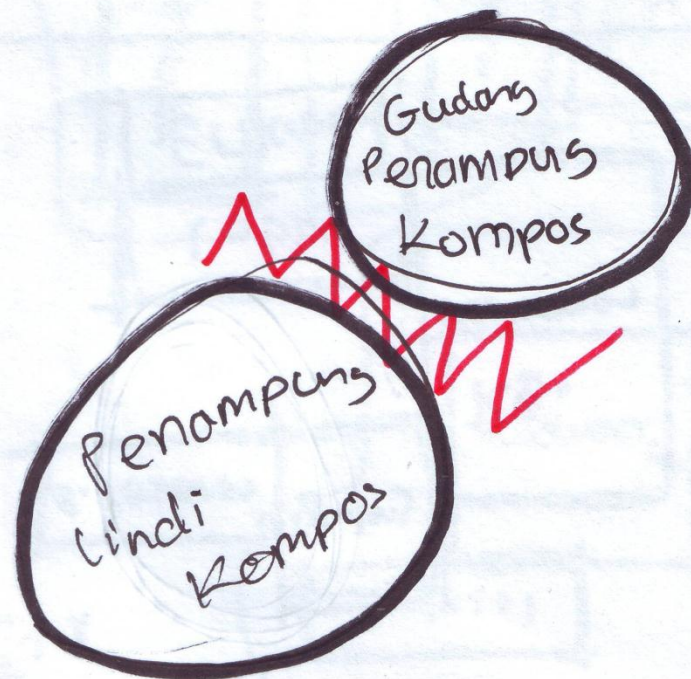 Gudang
Penampung
Kompos
Penampung
Lindi
Kompos